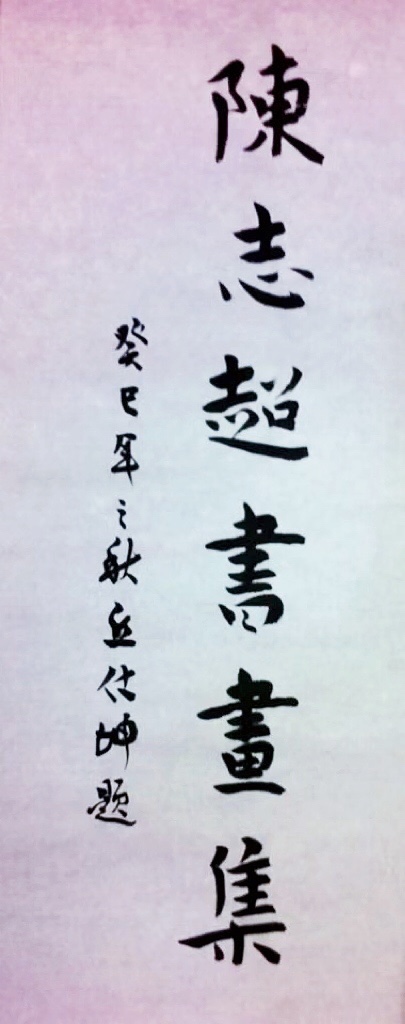 陳志超書畫集
癸巳年之秋丘仕坤題